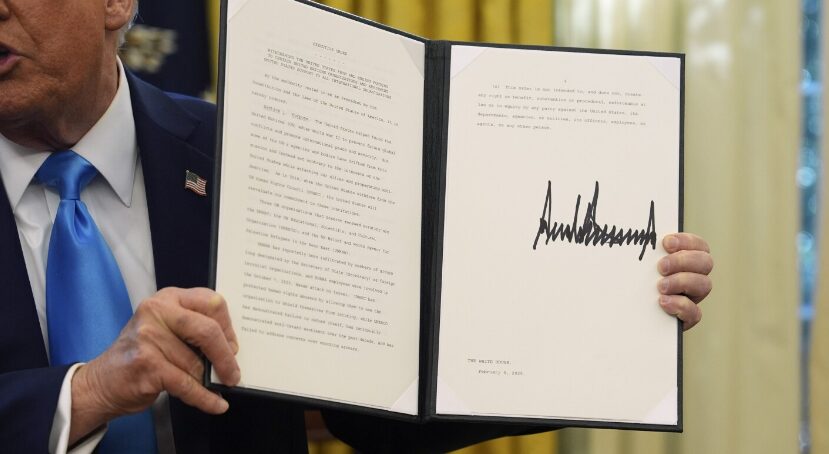 EXECUTIVE ORDER
WITHDRAWING THE UNITED STATES FROM AND ENDING FUNDING
TO CERTAIN UNITED NATIONS ORGANIZATIONS AND REVIEWING
UNITED STATES SUPPORT TO ALL INTERNATIONAL ORGANIZATIONS
By the authority vested in me as President by the
Constitution and the laws of the United States of America, it is
hereby ordered:
Section 1. Purpose. The United States helped found the
United Nations (UN) after World War II to prevent future global
conflicts and promote international peace and security. But
some of the UN's agencies and bodies have drifted from this
mission and instead act contrary to the interests of the
United States while attacking our allies and propagating anti-
Semitism. As in 2018, when the United States withdrew from the
UN Human Rights Council (UNHRC), the United States will
reevaluate our commitment to these institutions.
Three UN organizations that deserve renewed scrutiny are
the UNHRC; the UN Educational, Scientific, and Cultural
Organization (UNESCO); and the UN Relief and Works Agency for
Palestine Refugees in the Near East (UNRWA).
UNRWA has reportedly been infiltrated by members of groups
long designated by the Secretary of State (Secretary) as foreign
terrorist organizations, and UNRWA employees were involved in
the October 7, 2023, Hamas attack on Israel. UNHRC has
protected human rights abusers by allowing them to use the
organization to shield themselves from scrutiny, while UNESCO
has demonstrated failure to reform itself, has continually
demonstrated anti-Israel sentiment over the past decade, and has
failed to address concerns over mounting arrears.
(c) This order is not intended to, and does not, create
any right or benefit, substantive or procedural, enforceable at
law or in equity by any party against the United States, its
departments, agencies, or entities, its officers, employees, or
agents, or any other person.
THE WHITE HOUSE,
February 4, 2025